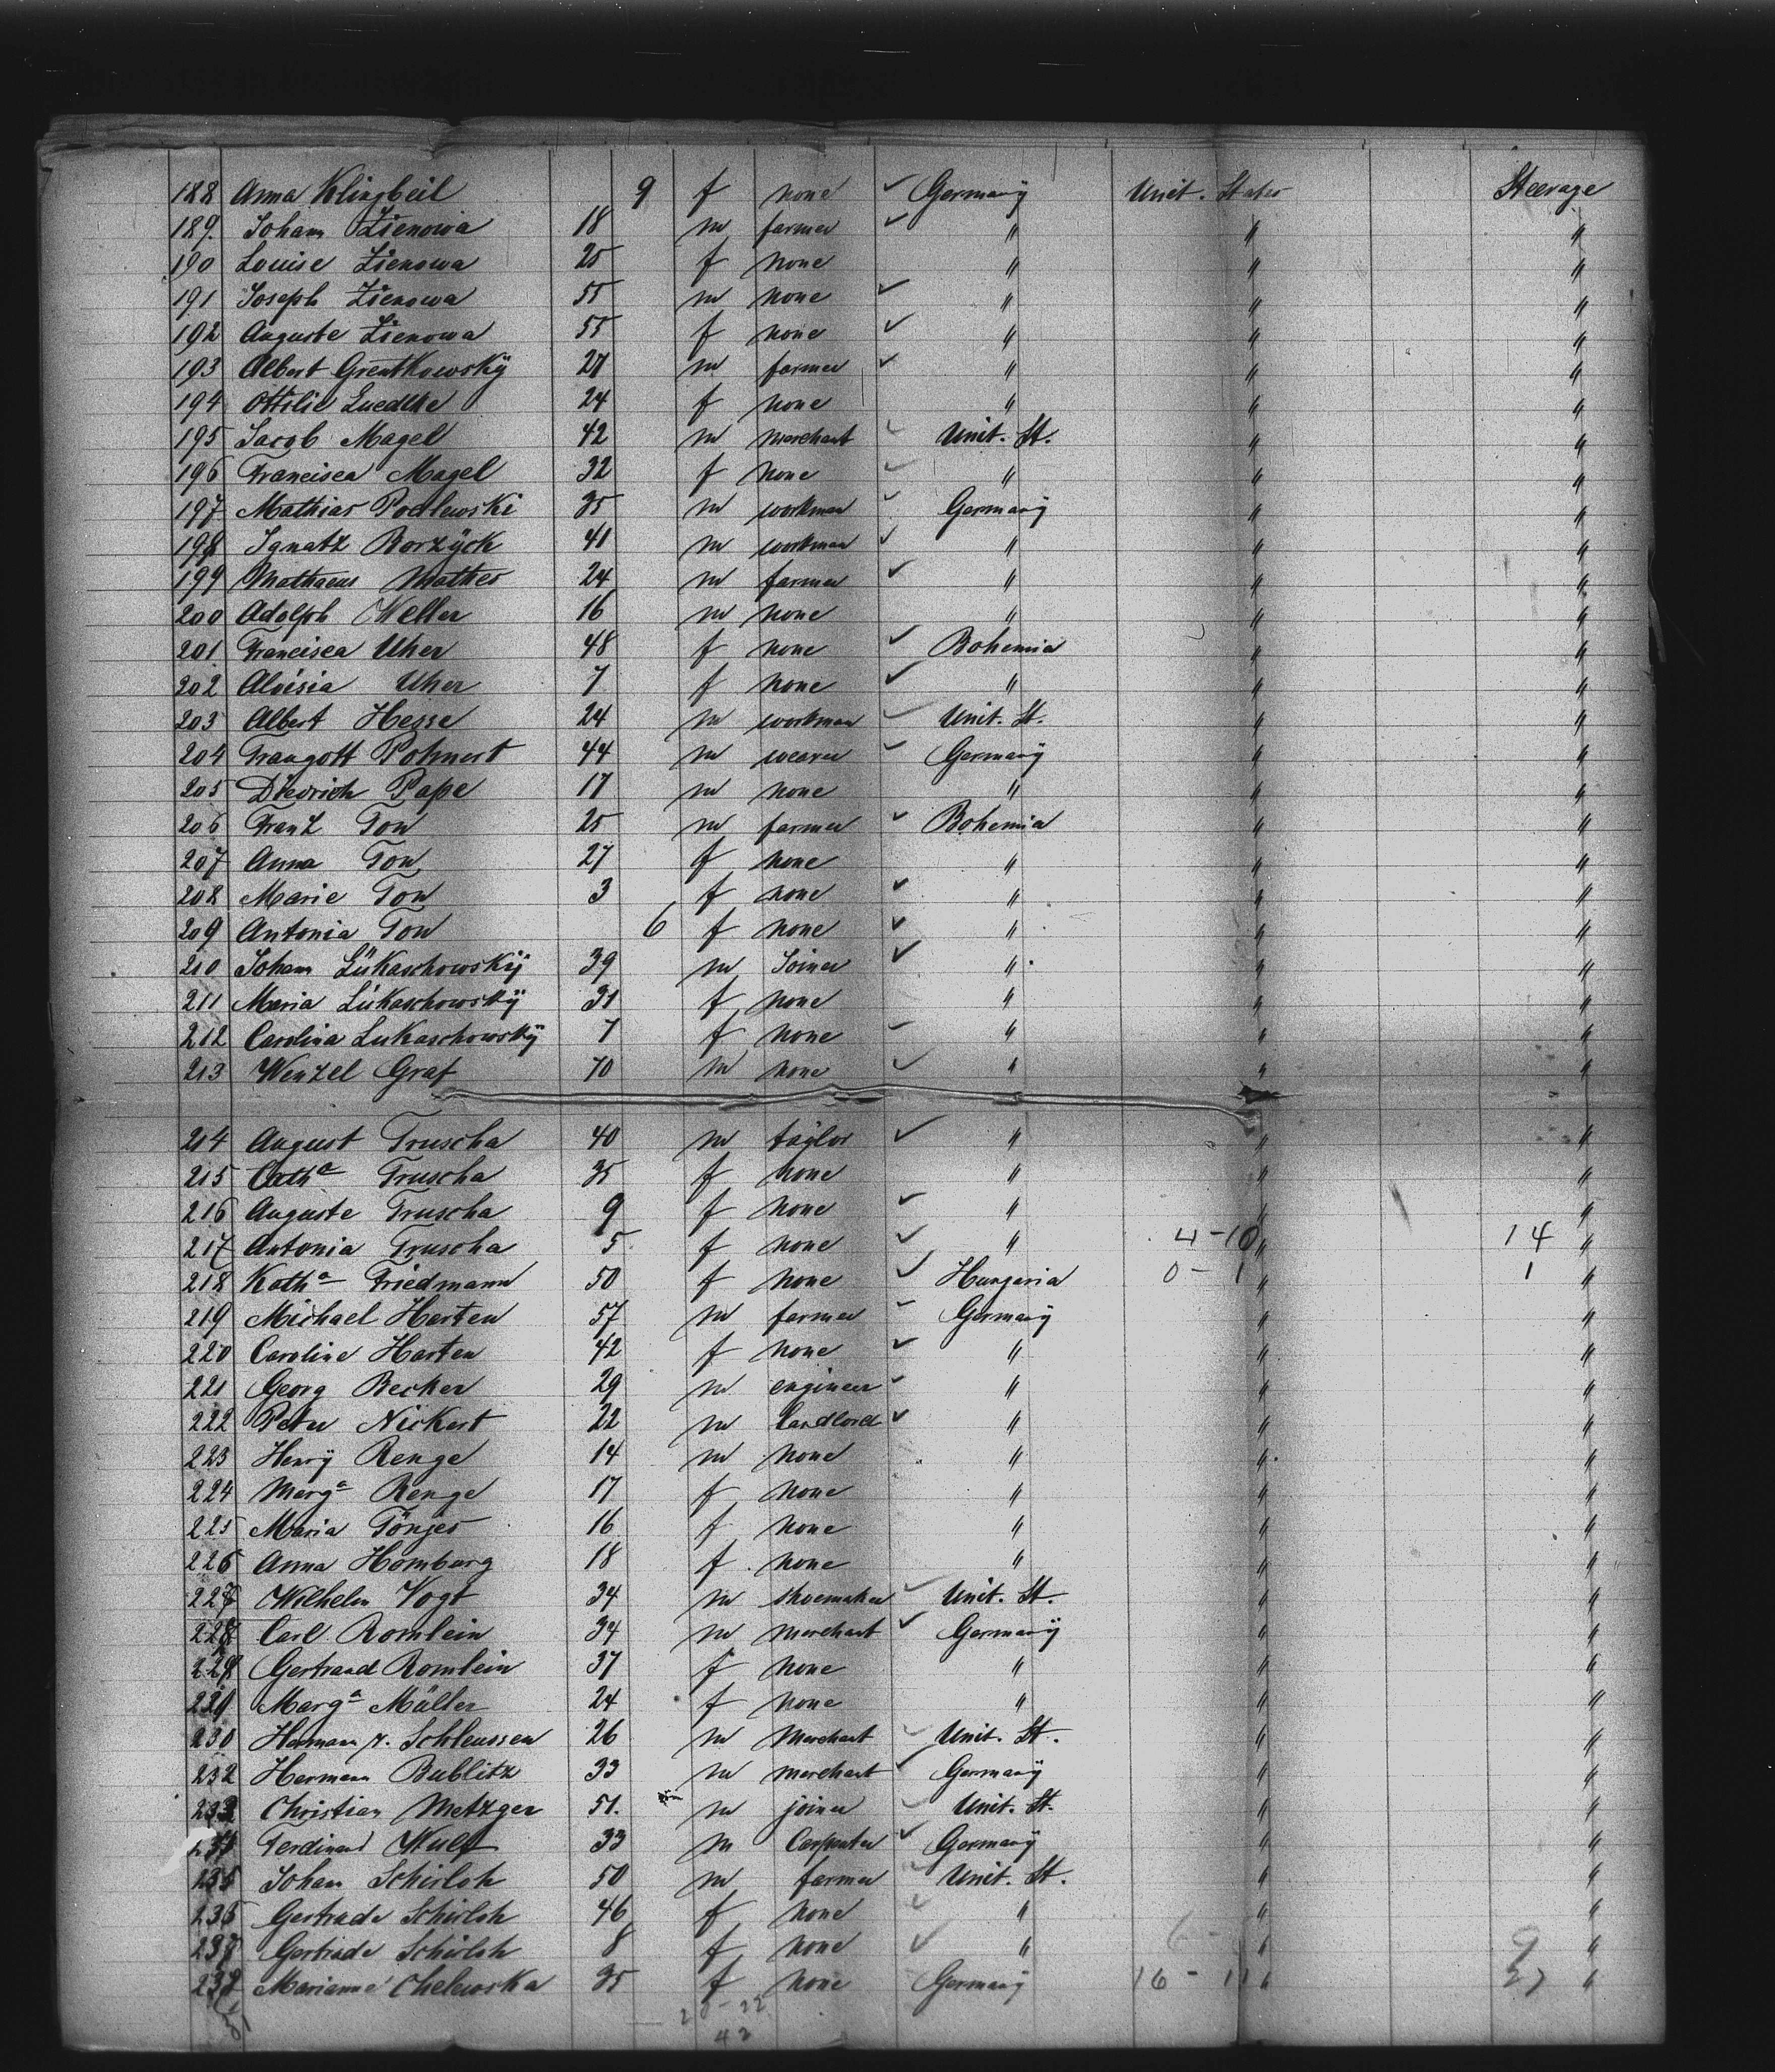 188 Anna Klingbeil 9 f none ✓ Germany Unit. States Steerage
189. Johann Zienowa 18 m farmer ✓ " " "
190 Louise Zienowa 25 f none " " "
191 Joseph Zienowa 55 m none ✓ " " "
192 Auguste Zienowa 55 f none ✓ " " "
193 Albert Grentkowsky 27 m farmer ✓ " " "
194 Ottilie Luedtke 24 f none " " "
195 Jacob Magel 42 m merchant ✓ Unit. St. " "
196 Francisca Magel 32 f none ✓ " " "
197 Mathias Podlewski 35 m workman ✓ Germany " "
198 Ignatz Borzyck 41 m workman ✓ " " "
199 Mathaeus Mathes 24 m farmer ✓ " " "
200 Adolph Weller 16 m none " " "
201 Francisca Uher 48 f none ✓ Bohemia " "
202 Aloisia Uher 7 f none ✓ " " "
203 Albert Hesse 24 m workman ✓ Unit. St. " "
204 Traugott Pohnert 44 m weaver ✓ Germany " "
205 Diedrich Pape 17 m none " " "
206 Franz Tow 25 m farmer ✓ Bohemia " "
207 Anna Tow 27 f none " " "
208 Marie Tow 3 f none ✓ " " "
209 Antonia Tow 6 f none ✓ " " "
210 Johann Lukaschowsky 39 m Joiner ✓ " " "
211 Maria Lukaschowsky 31 f none " " "
212 Carolina Lukaschowsky 7 f none ✓ " " "
213 Wenzel Graf 70 m none ✓ " " "
214 August Truscha 40 m taylor ✓ " " "
215 Cath^a Truscha 35 f none " " "
216 Auguste Truscha 9 f none ✓ " " "
217 Antonia Truscha 5 f none ✓ " 4-10 " 14 "
218 Kath^a Friedmann 50 f none ✓ Hungaria 0-1 " 1 "
219 Michael Harten 57 m farmer ✓ Germany " "
220 Caroline Harten 42 f none ✓ " " "
221 Georg Becker 29 m engineer ✓ " " "
222 Peter Nickert 22 m landlord ✓ " " "
223 Henry Renge 14 m none " " "
224 Marg^a Renge 17 f none " " "
225 Maria Tönjes 16 f none " " "
226 Anna Homburg 18 f none " " "
227 Wilhelm Vogt 34 m shoemaker ✓ Unit. St. " "
228 Carl Romlein 34 m merchant ✓ Germany " "
229 Gertraud Romlein 37 f none " " "
230 Marg^a Müller 24 f none " " "
230 Hermann v. Schleussen 26 m Merchant ✓ Unit. St. " "
232 Hermann Bublitz 33 m merchant ✓ Germany " "
233 Christian Metzger 51. m joiner ✓ Unit. St. " "
234 Ferdinand Wulf 33 m Carpenter ✓ Germany " "
235 Johann Schirloh 50 m farmer ✓ Unit. St. " "
236 Gertrude Schirloh 46 f none ✓ " " "
237 Gertrude Schirloh 8 f none ✓ " 6- " 9 "
238 Marianne Chelewska 35 f none Germany 16-11 " 27 "
20-22
42